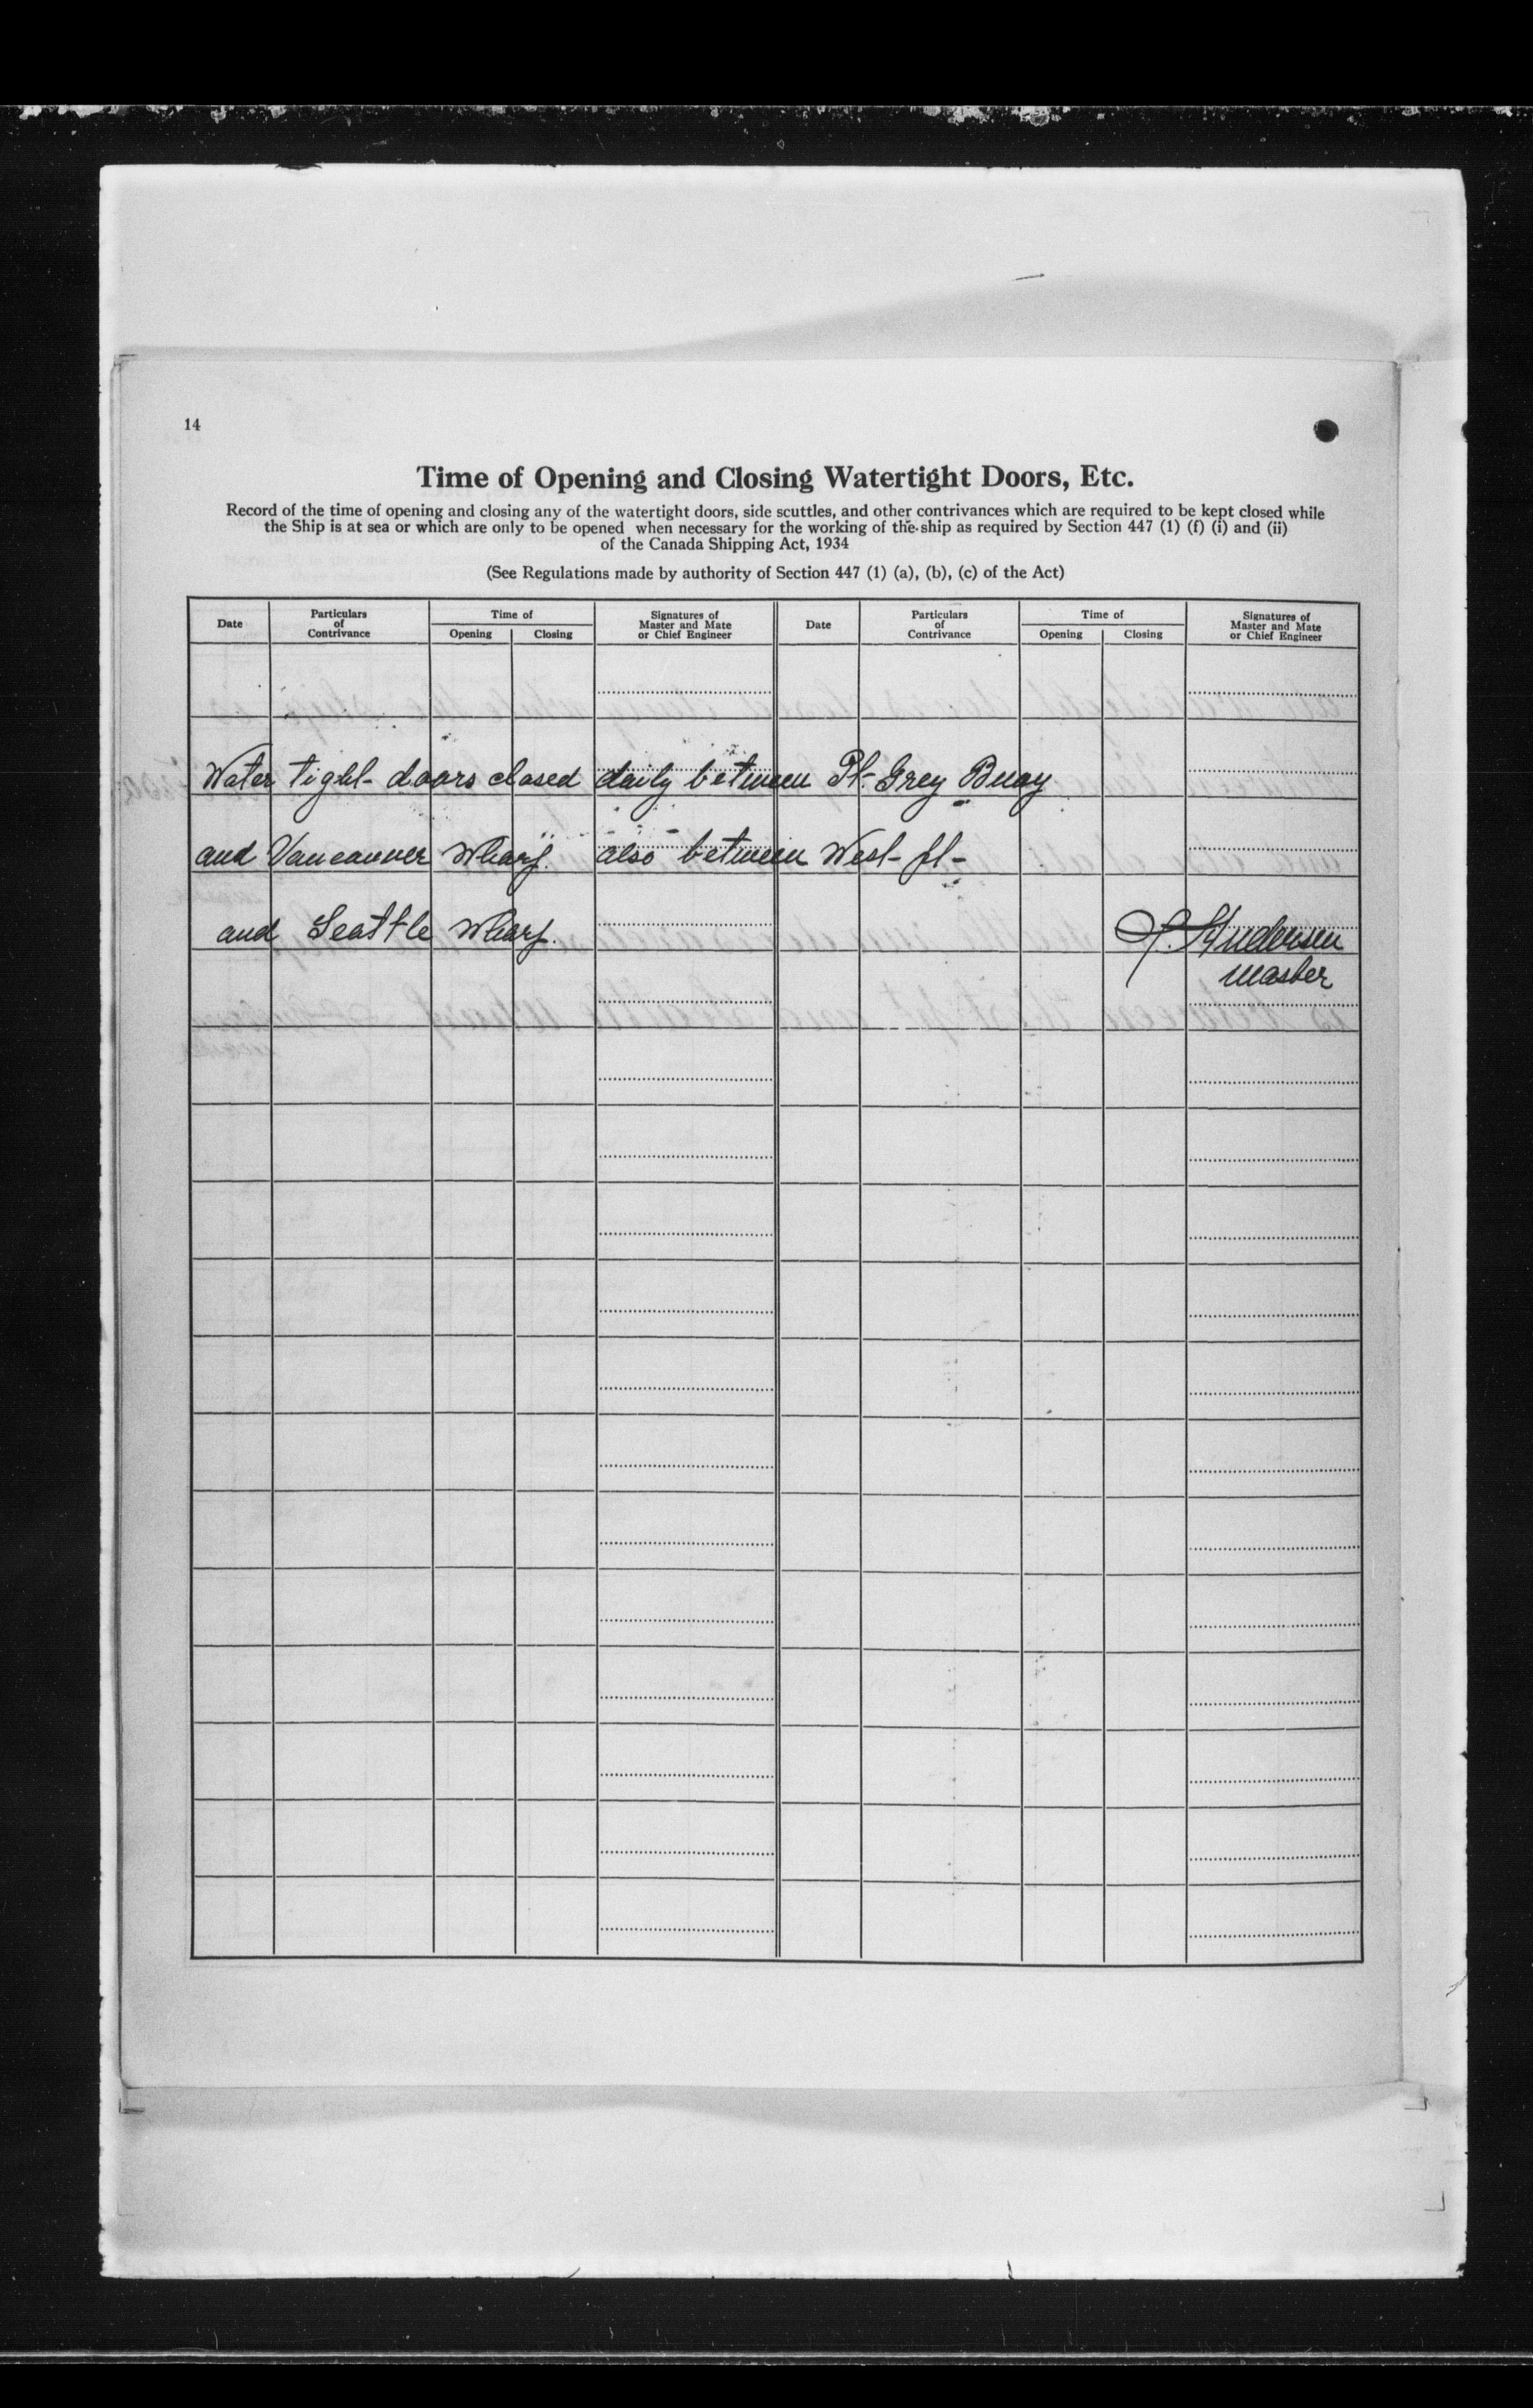 14
Time of Opening and Closing Watertight Doors, Etc.
Record of the time of opening and closing any of the watertight doors, side scuttles, and other contrivances which are required to be kept closed while
the Ship is at sea or which are only to be opened when necessary for the working of the ship as required by Section 447 (1) (f) (i) and (ii)
of the Canada Shipping Act, 1934
(See Regulations made by authority of Section 447 (1) (a), (b), (c) of the Act)
Date Particulars of Contrivance Time of Opening Closing Signatures of Master and Mate or Chief Engineer Date Particulars of Contrivance Time of Opening Closing Signatures of Master and Mate or Chief Engineer
Water tight doors closed daily between Pt. Grey Buoy
and Vancouver Wharf. also between West pt
and Seattle Wharf.
Anderson
Master